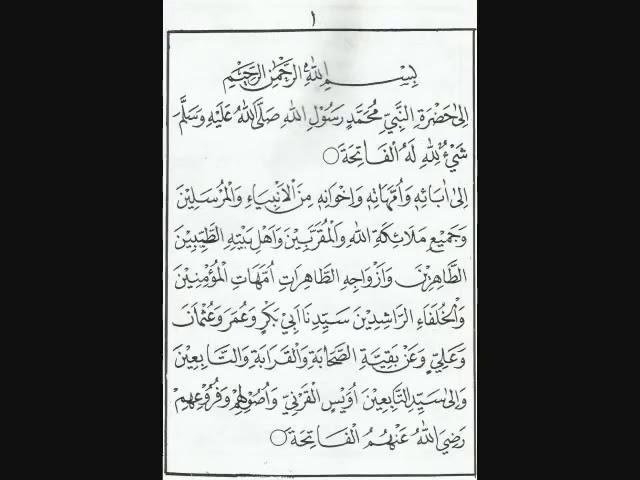 ١
بِسْمِ اللهِ الرَّحْمٰنِ الرَّحِيْمِ
اِلىٰ حَضْرَةِ النَّبِيِّ مُحَمَّدٍ رَسُوْلِ اللهِ صَلَّى اللهُ عَلَيْهِ وَسَلَّمَ
شَيْءٌ لِلّٰهِ لَهُ الْفَاتِحَةَ ○
اِلىٰ اٰبَائِهِ وَاُمَّهَاتِهِ وَاِخْوَانِهِ مِنَ الْاَنْبِيَاءِ وَالْمُرْسَلِيْنَ
وَجَمِيْعِ مَلَائِكَةِ اللهِ وَالْمُقَرَّبِيْنَ وَاَهْلِ بَيْتِهِ الطَّيِّبِيْنَ
الطَّاهِرِيْنَ وَاَزْوَاجِهِ الطَّاهِرَاتِ اُمَّهَاتِ الْمُؤْمِنِيْنَ
وَالْخُلَفَاءِ الرَّاشِدِيْنَ سَيِّدِنَا اَبِيْ بَكْرٍ وَعُمَرَ وَعُثْمَانَ
وَعَلِيٍّ وَعَنْ بَقِيَّةِ الصَّحَابَةِ وَالْقَرَابَةِ وَالتَّابِعِيْنَ
وَاِلىٰ سَيِّدِ التَّابِعِيْنَ اُوَيْسِ الْقَرْنِيِّ وَاُصُوْلِهِمْ وَفُرُوْعِهِمْ
رَضِيَ اللهُ عَنْهُمُ الْفَاتِحَةَ ○